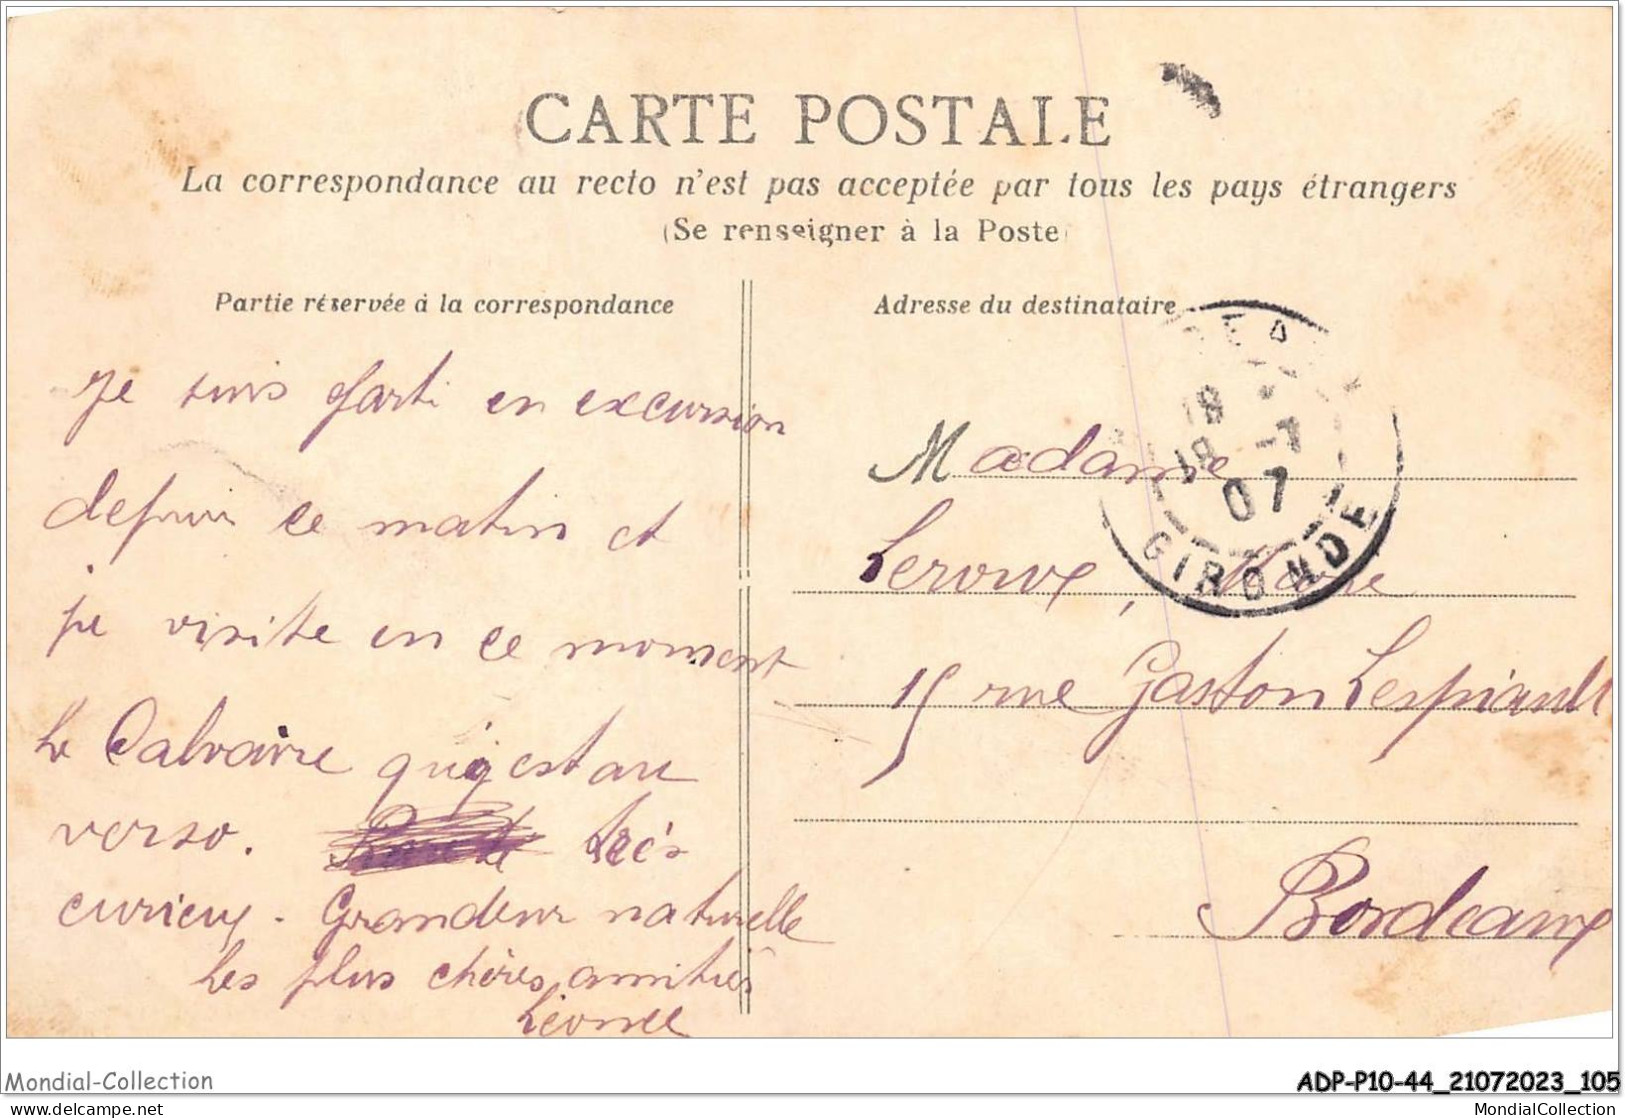 CARTE POSTALE
La correspondance au recto n'est pas acceptée par tous les pays étrangers
(Se renseigner à la Poste)
Partie réservée à la correspondance
Je suis parti en excursion
depuis ce matin et
je visite en ce moment
le Calvaire qui est au
verso. très
curieux - Grandeur naturelle
Les plus chères amitiés
Léonce
Adresse du destinataire
Madame
Leroux,
15 rue Gaston Lespiault
Bordeaux
18
18 -7
07
GIRONDE
Mondial-Collection
ADP-P10-44_21072023_105
delcampe.net
MondialCollection